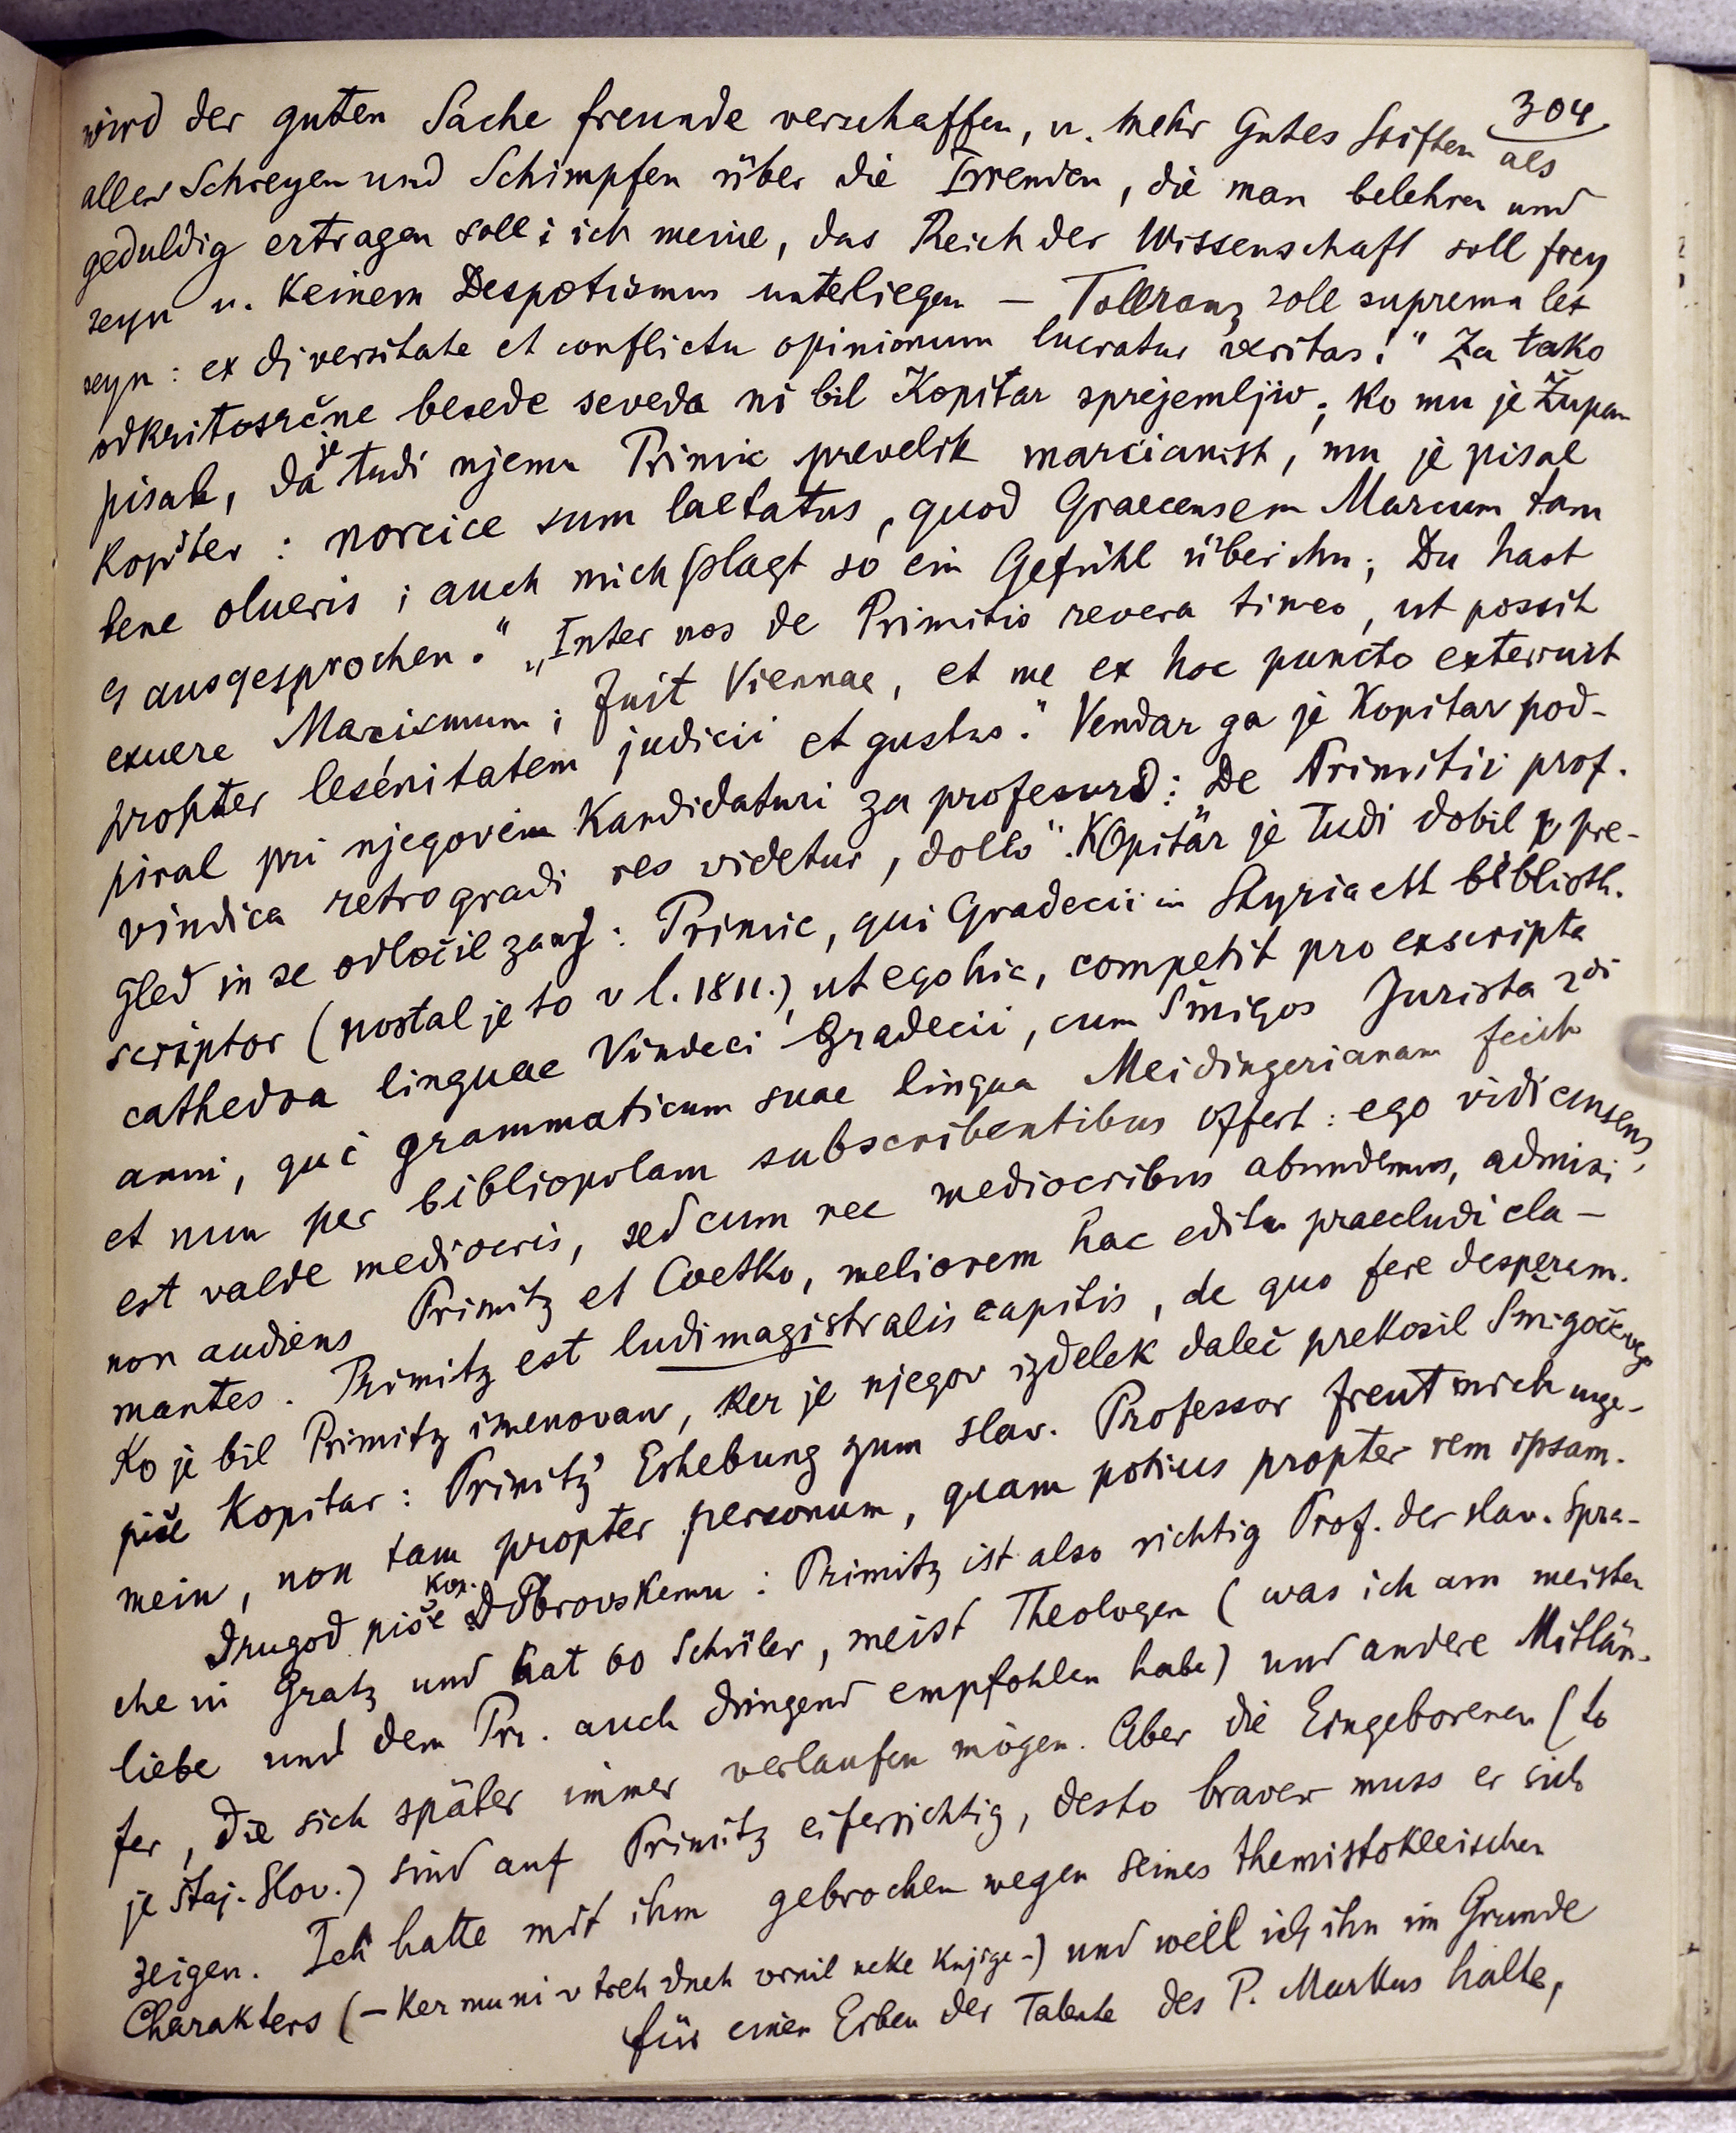 304
wird der guten Sache freunde verschaffen, u. mehr Gutes Stiften als
alles Schreyen und Schimpfen über die Irrenden, die man belehren und
geduldig ertragen soll; ich meine, das Reich der Wissenschaft soll frey
seyn u. keinem Despotismus unterliegen – Tolleranz soll suprema lex
seyn: ex diversitate et conflictu opinionum lucratur veritas!" Za tako
odkritosrčne besede seveda ni bil Kopitar sprejemljiv; ko mu je Župan
pisal, da je tudi njemu Primic prevelik marcianist, mu je pisal
Kopitar: norcice sum laetatus, quod Graecensem Marcum tam
bene olueris; auch mich plagt so ein Gefühl über ihn; Du hast
es ausgesprochen." „Inter nos de Primitio revera timeo, ut possit
exuere Marcismum; fuit Viennae, et me ex hoc puncto exterruit
propter lesénitatem judicii et gustus." Vendar ga je Kopitar pod-
piral pri njegovim kandidaturi za profesuro: De Primitii prof.
vindica retrogradi res videtur, dollo". Kopitar je tudi dobil v pre-
gled in se odločil zanj: Primic, qui Gradecii in Styria est biblioth.
scriptor (postal je to v l. 1811.), ut ego hic, competit pro exscripta
cathedra linguae Vindici Gradecii, cum Šmigos Jurista 2di
anni, qui grammaticum suae lingua Meidingerianam fecit
et nun per bibliopolam subscribentibus offert: ego vidi censens,
est valde mediocris, sed cum nec mediocribus abundemus, admisi
non audiens Primitz et Cvetko, meliorem hac edita praecludi cla-
mantes. Primitz est ludimagistralis capitis, de quo fere desperam.
Ko je bil Primitz imenovan, ker je njegov izdelek daleč prekosil Smigočevega
piše Kopitar: Primitz' Erhebung zum slav. Professor freut mich unge-
mein, non tam propter personum, quam potius propter rem ipsam.
Drugod piše Kop. Dobrovskemu: Primitz ist also richtig Prof. der slav. Spra-
che in Gratz und hat 60 Schüler, meist Theologen (was ich am meisten
liebe und dem Pr. auch dringend empfohlen habe) und andere Mitläu-
fer, die sich später immer verlaufen mögen. Aber die Eingeborenen (to
je štaj. Slov.) sind auf Primitz eifersichtig, desto braver muss er sich
zeigen. Ich hatte mit ihm gebrochen wegen seines themistokleischen
Charakters (– ker mu ni v treh dneh vrnil neke knjige –) und weil ich ihn im Grunde
für einen Erben der Talente des P. Markus halte,